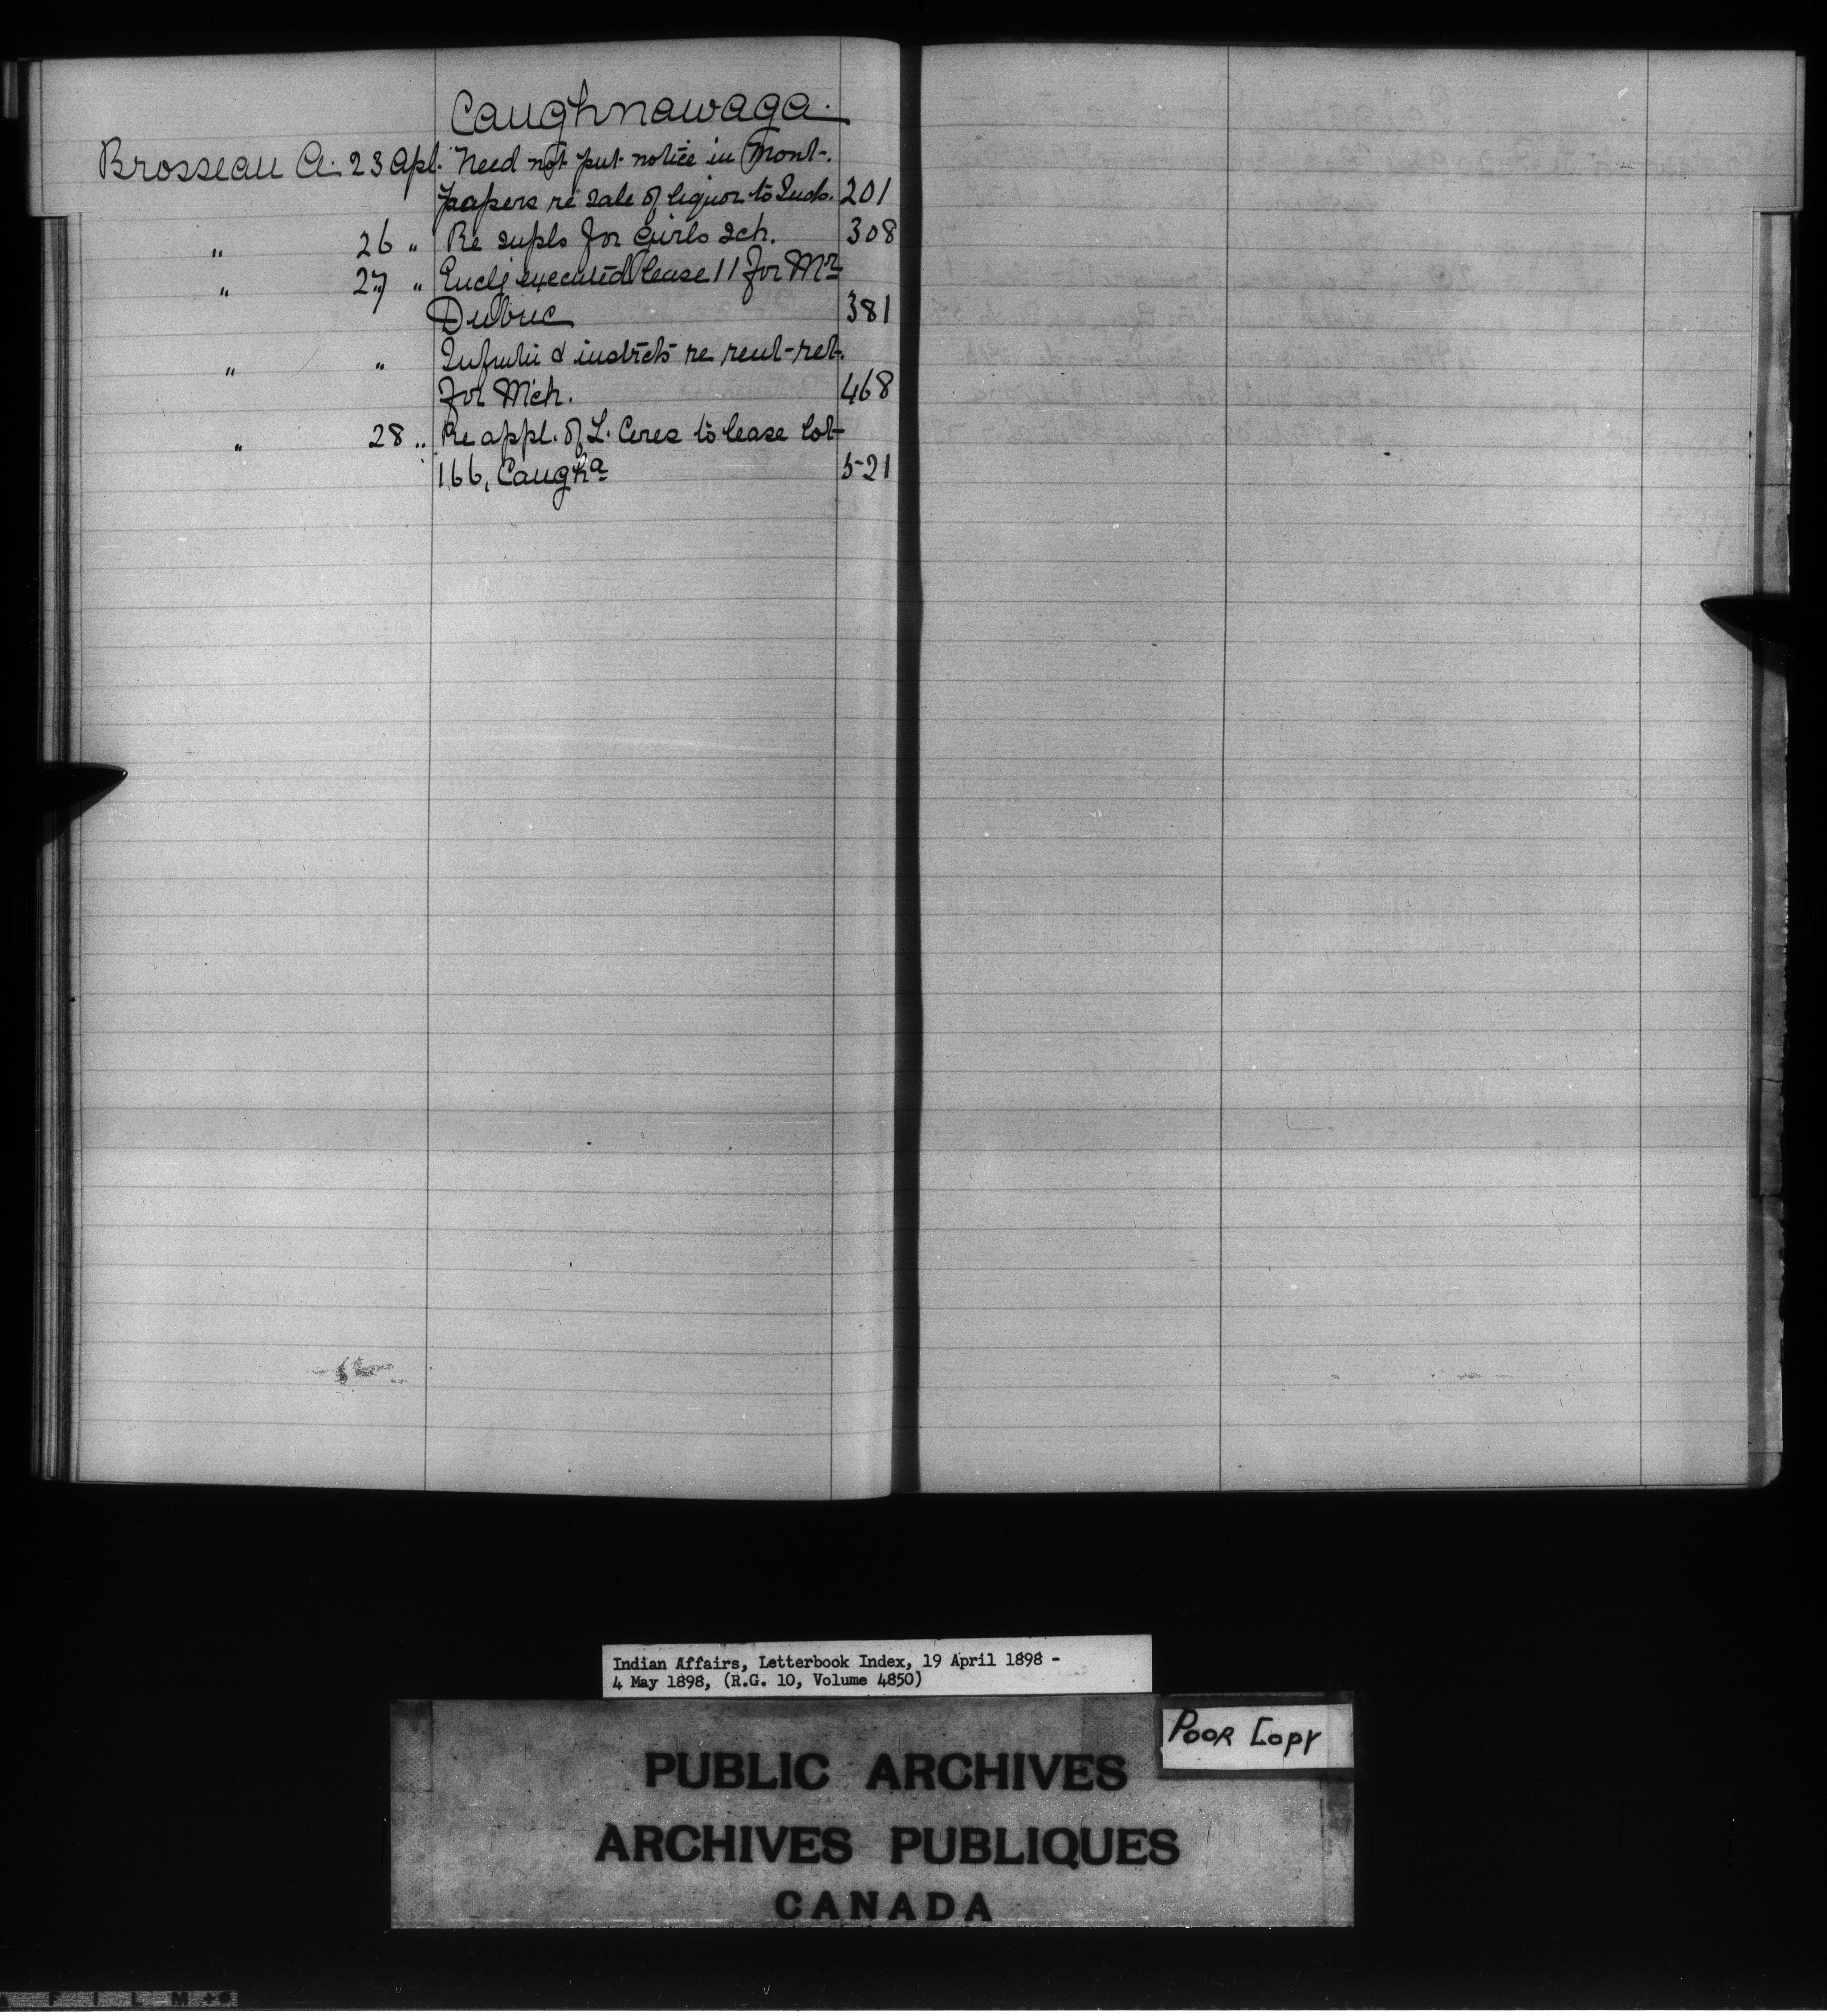 Caughnawaga.
Brosseau A. 23 Apl. Need not put notice in Mont.
papers re sale of liquor to Inds. 201
" 26 " Re supls for Girls Sch. 308
" 27 " Encls executed lease 11 for Mr
Dubuc 381
" " & instrcts re rent-ret.
for Mch. 468
" 28 " Re appl. of L. to lease lot
166, Caugha 521
Indian Affairs, Letterbook Index, 19 April 1898 -
4 May 1898, (R.G. 10, Volume 4850)
POOR COPY
PUBLIC ARCHIVES
ARCHIVES PUBLIQUES
CANADA